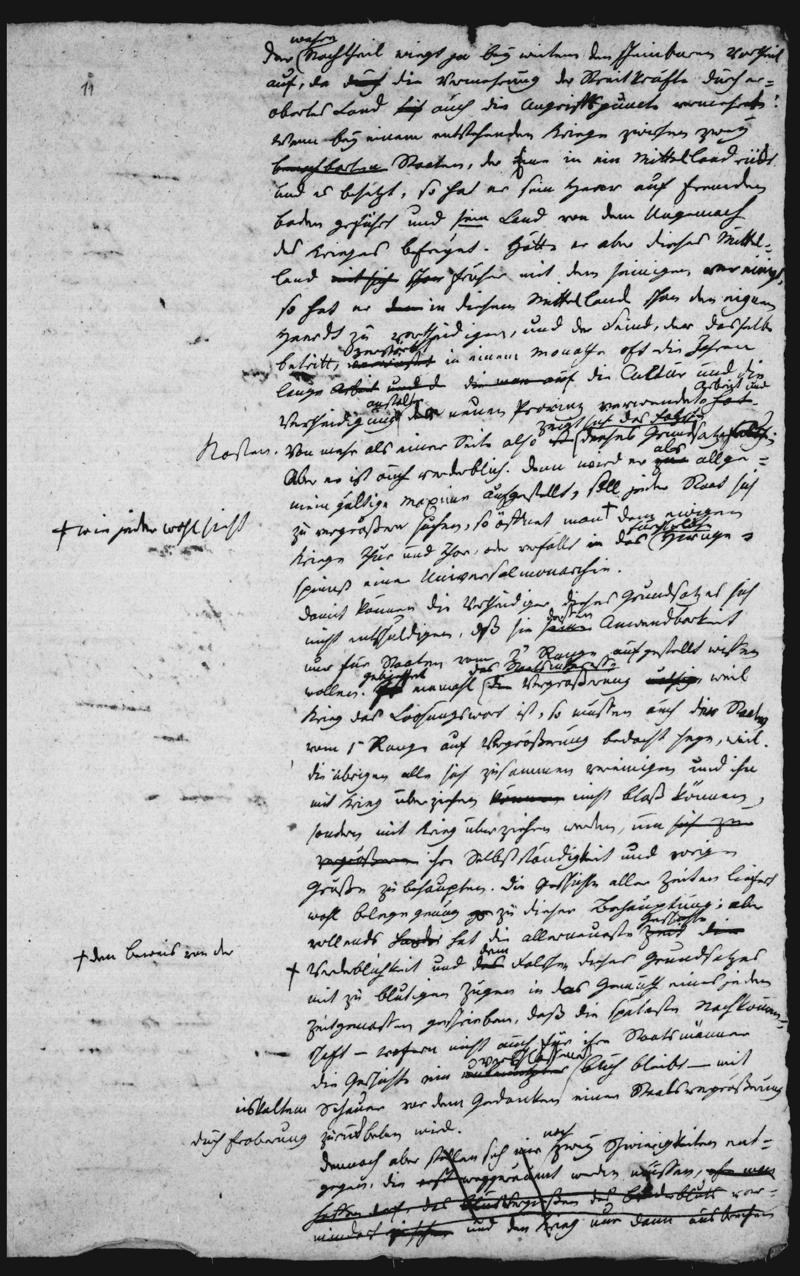 11
wahre
der Nachtheil wiegt ja bey weitem den scheinbaren Vortheil
auf, da durch die Vermehrung der Streitkräfte durch er-
obertes Land auch die Angriffspuncte vermehrt!
Wenn bey einem entstehenden Kriege zwischen zwey
benachbarten Staaten, der eine in ein Mittelland rückt
und es besetzt, so hat er sein Heer auf fremden
boden geführt und sein Land von dem Ungemach
des Krieges befreyet. Hätte er aber dieses Mittel-
land mit sich schon früher mit dem seinigen vereinigt,
so hat er in diesem Mittellande schon den eigenen
Heerdt zu vertheidigen, und der Feind, der dasselbe
betritt, zerstört in einem Monathe oft die Jahren
lange Arbeit und die man auf die Cultur und die
anstalt Arbeit und
Vertheidigungs der neuen Provinz verwendete
Kosten. Von mehr als einer Seite also zeigt sich das dieses Grundsatzes
Aber er ist auch verderblich. Denn wird er als allge-
mein gültige Maxime aufgestellt, soll jeder Staat sich
+ wie jeder wohl sieht
zu vergrößern suchen, so öffnet man + dem ewigen
Kriege Thür und Thor, oder verfällt in das
einer Universalmonarchie.
Damit können die Vertheidiger dieses Grundsatzes sich
nicht entschuldigen, daß sie dessen Anwendbarkeit
nur für Staaten vom Range aufgestellt wissen
wollen. gebiethet einmahl das Staatsinteresse Vergrößerung weil
Krieg das Loosungswort ist, so müssen auch die Staaten
vom 1 Range auf Vergrößerung bedacht seyn, weil
die übrigen alle sich zusammen vereinigen und sie
mit Krieg überziehen können nicht bloß können,
sondern mit Krieg überziehen werden, um sich zu
vergrößern ihre Selbstständigkeit und vorige
Größe zu behaupten. Die Geschichte aller Zeiten liefert
wohl belege genug zu dieser Behauptung; aber
vollends hat die allerneueste Geschichte
+ den beweis von der
+ Verderblichkeit und dem Falschen dieses Grundsatzes
mit zu blutigen Zügen in das Gemüth eines jeden
Zeitgenossen geschrieben, daß die späteste Nachkommen-
schaft – wofern nicht auch für ihre Staatsmänner
die Geschichte ein verschlossenes Buch bleibt – mit
eiskaltem Schauer vor dem Gedanken einer Staatsvergrößerung
durch Eroberung zurückbeben wird.
Dennoch aber stellen sich noch zwey Schwierigkeiten ent-
gegen, die erst weggeräumt werden müssen,
das Blutvergießen des
mindert und den Krieg nur dann ausbrechen